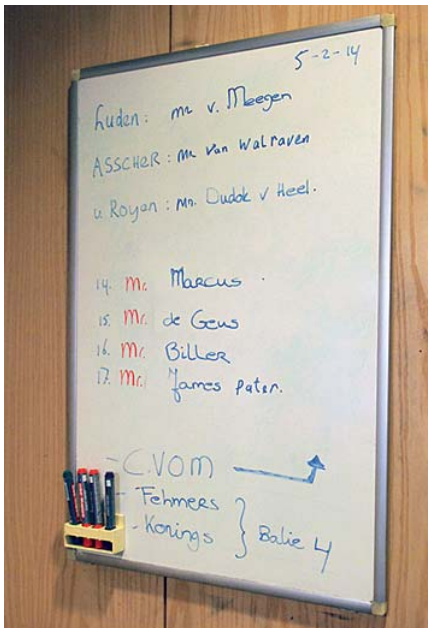 5-2-14
Luden: mr v. Meegen
ASSCHER: mr van Walraven
v. Royen: mr. Dudok v Heel.
14. Mr. Marcus
15. Mr. de Geus
16. Mr. Biller
17. Mr. James pater.
- C.VOM
- Fehmers
- Konings } Balie 4